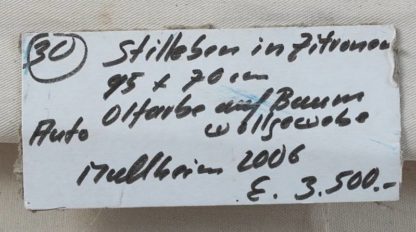 30 Stilleben in Zitronen
95 x 70 cm
Auto Olfarbe auf Baum
wollgewebe
Mullheim 2006
E. 3.500.-